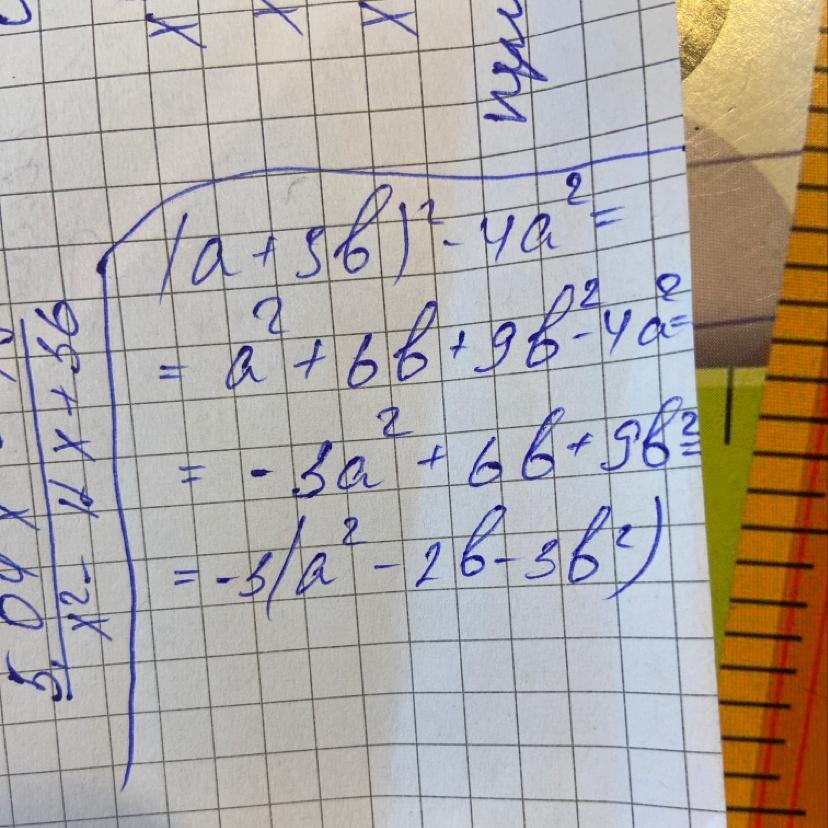 (a+3b)²-4a²=
= a²+6b+9b²-4a²=
= -3a²+6b+9b²=
= -3(a²-2b-3b²)
x²-12x+36